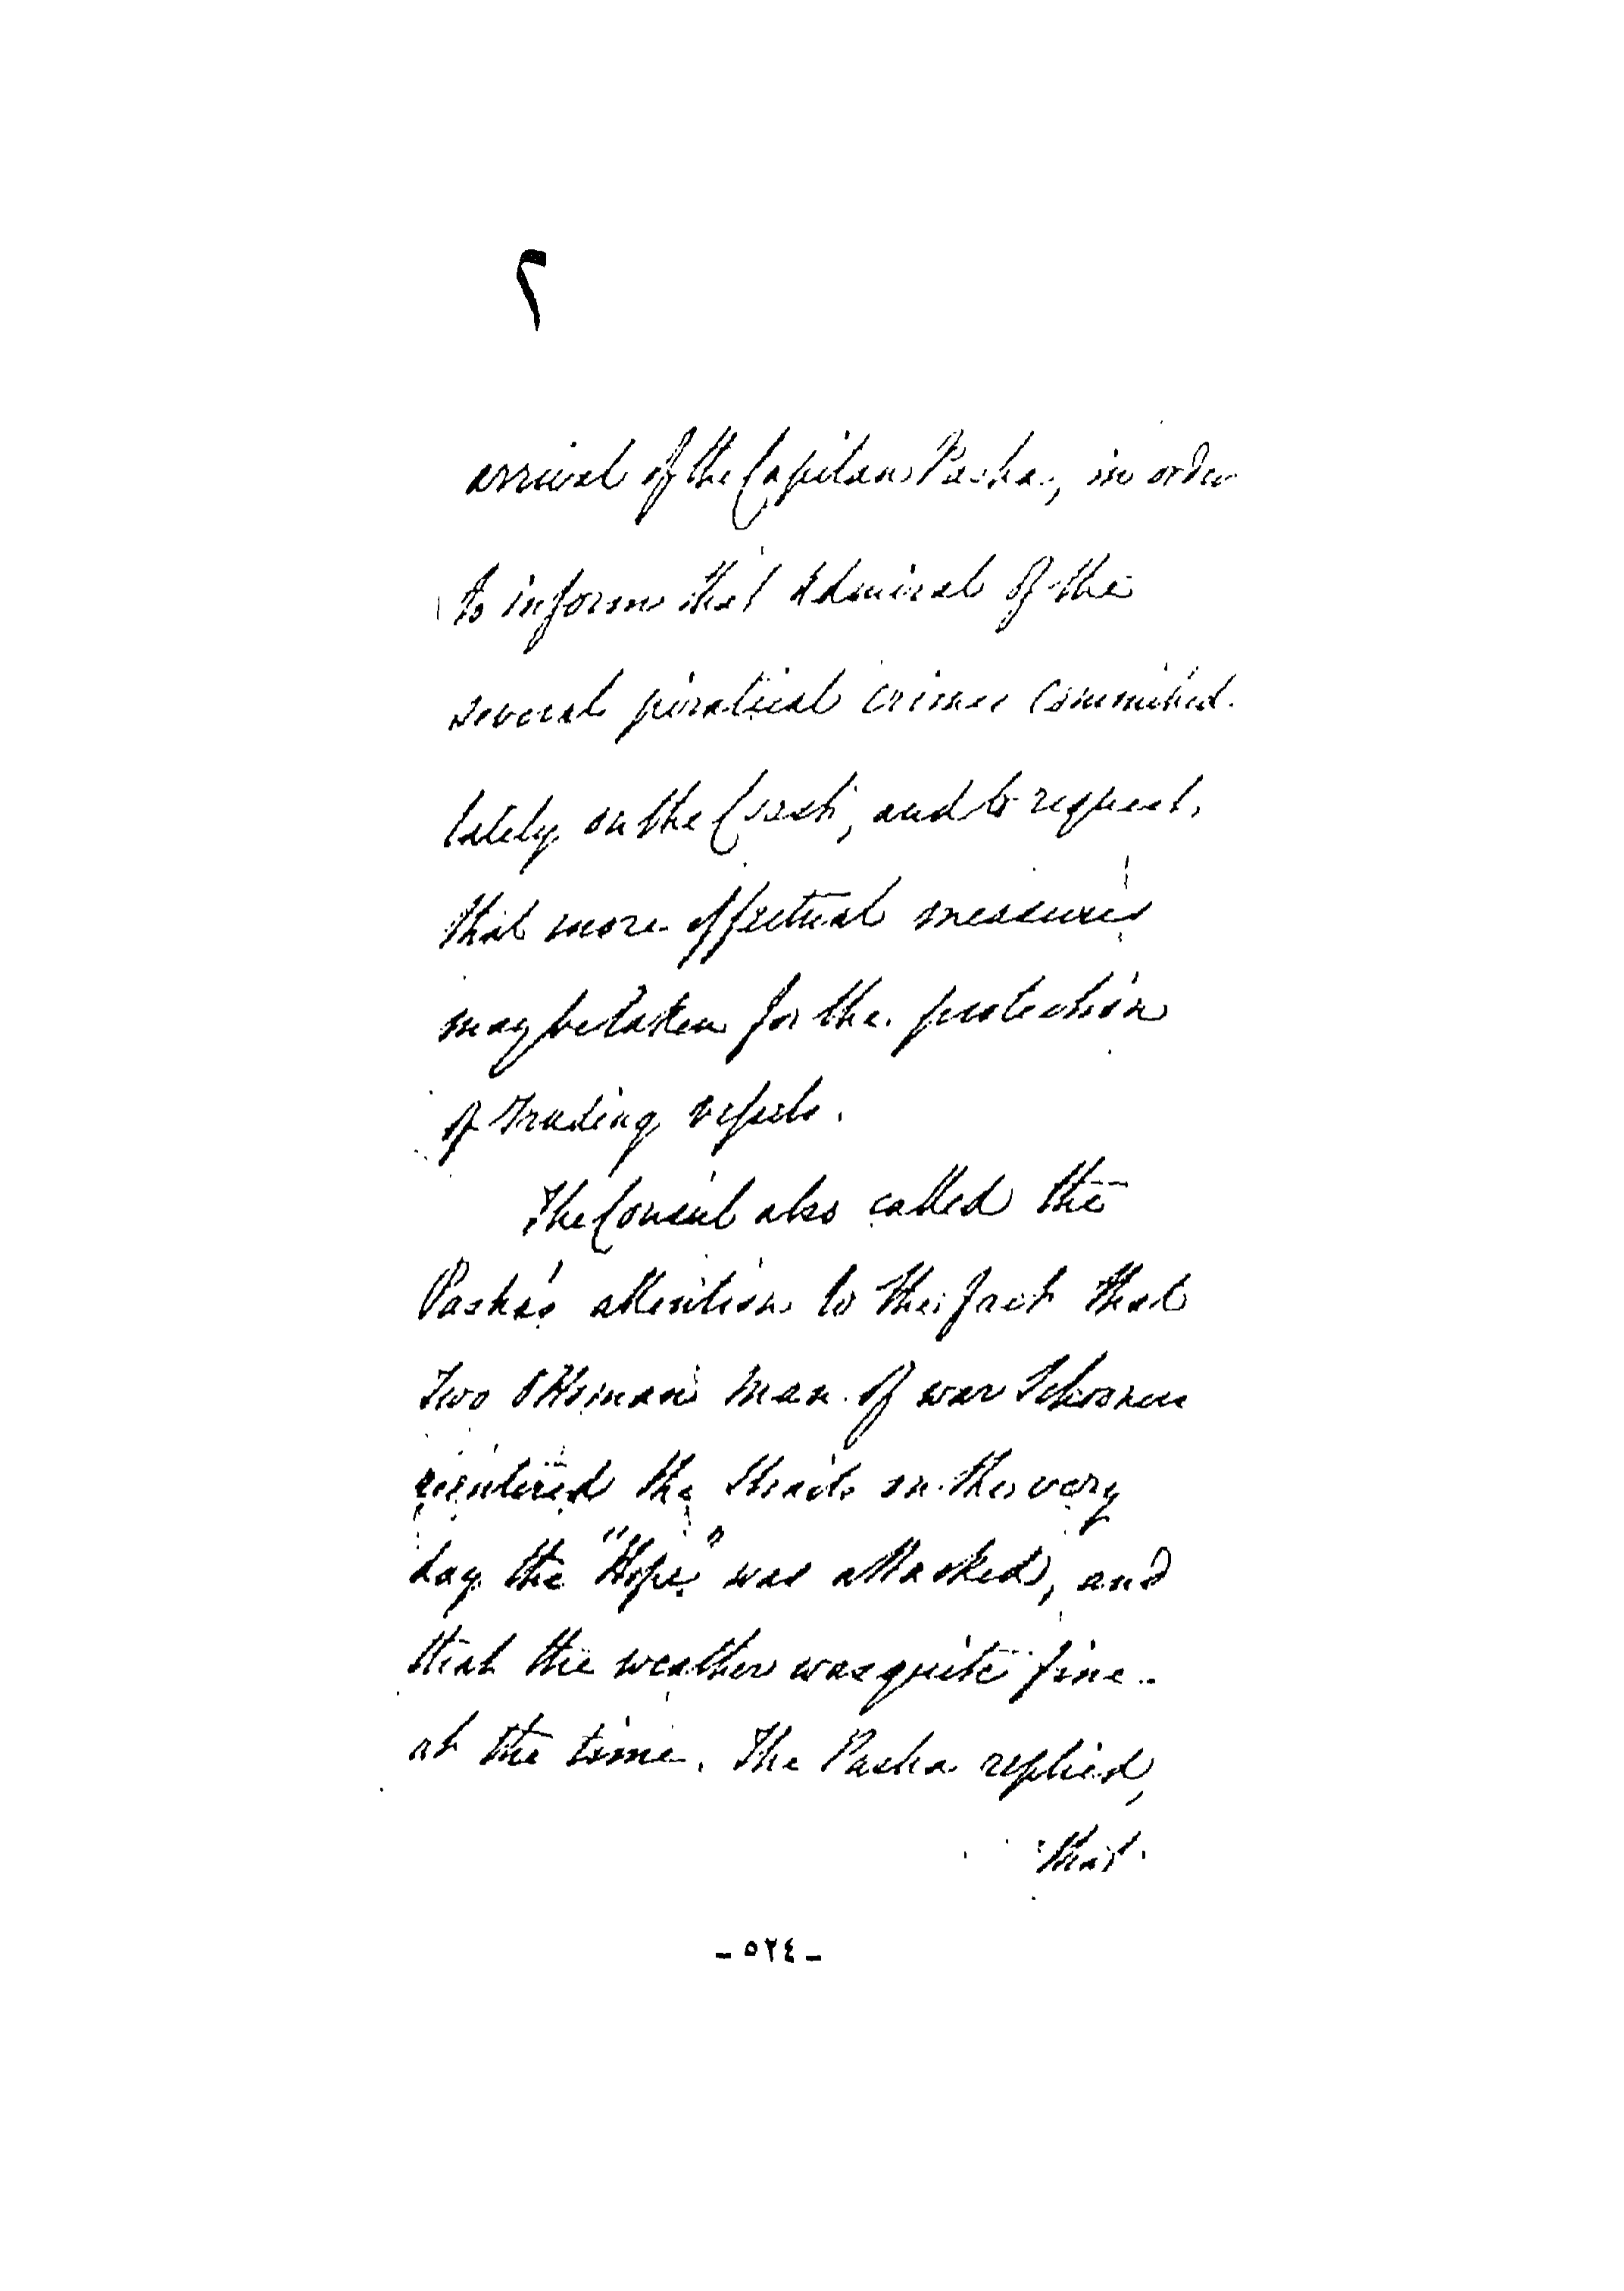 ٢
arrival of the Capitan Pasha, in order
to inform that Admiral of the
several piratical crimes committed
lately on the Coast, and to request,
that more effectual measures
may be taken for the protection
of trading vessels.
The Consul also called the
Pasha's attention to the fact that
two Ottoman man of war Schooners
reentered the Straits on the very
day the "Hope" was attacked, and
that the weather was quite fine
at the time. The Pasha replied,
that
- ٥٢٤ -